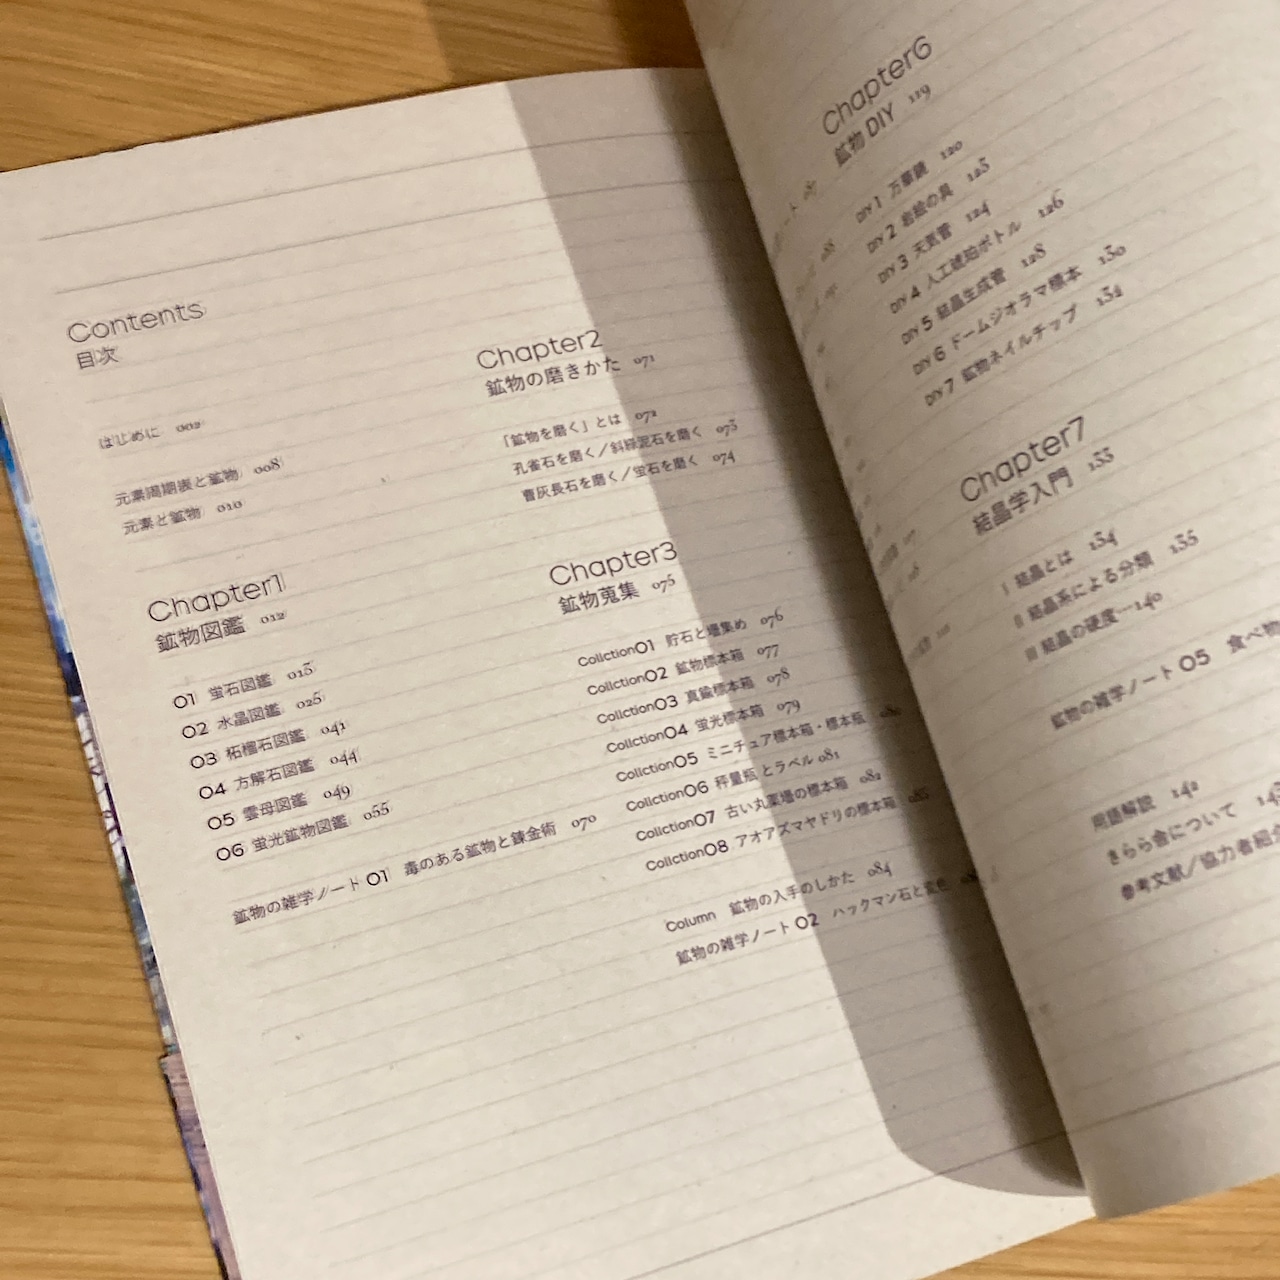 Contents
目次
はじめに 002
元素周期表と鉱物 008
元素と鉱物 010
Chapter1
鉱物図鑑 012
01 蛍石図鑑 013
02 水晶図鑑 025
03 柘榴石図鑑 041
04 方解石図鑑 044
05 雲母図鑑 049
06 蛍光鉱物図鑑 055
鉱物の雑学ノート01 毒のある鉱物と錬金術 070
Chapter2
鉱物の磨きかた 071
「鉱物を磨く」とは 072
孔雀石を磨く/斜緑泥石を磨く 073
曹灰長石を磨く/蛍石を磨く 074
Chapter3
鉱物蒐集 075
Collction01 貯石と壜集め 076
Collction02 鉱物標本箱 077
Collction03 真鍮標本箱 078
Collction04 蛍光標本箱 079
Collction05 ミニチュア標本箱・標本瓶 080
Collction06 秤量瓶とラベル 081
Collction07 古い丸薬壜の標本箱 082
Collction08 アオアズマヤドリの標本箱 083
Column 鉱物の入手のしかた 084
鉱物の雑学ノート02 ハックマン石と変色
Chapter6
鉱物DIY 119
DIY 1 万華鏡 120
DIY 2 岩絵の具 123
DIY 3 天気管 124
DIY 4 人工琥珀ボトル 126
DIY 5 結晶生成管 128
DIY 6 ドームジオラマ標本 130
DIY 7 鉱物ネイルチップ 132
Chapter7
結晶学入門 133
I 結晶とは 134
II 結晶系による分類 135
III 結晶の硬度…140
鉱物の雑学ノート05 食べ物
用語解説 142
きらら舎について
参考文献/協力者紹介